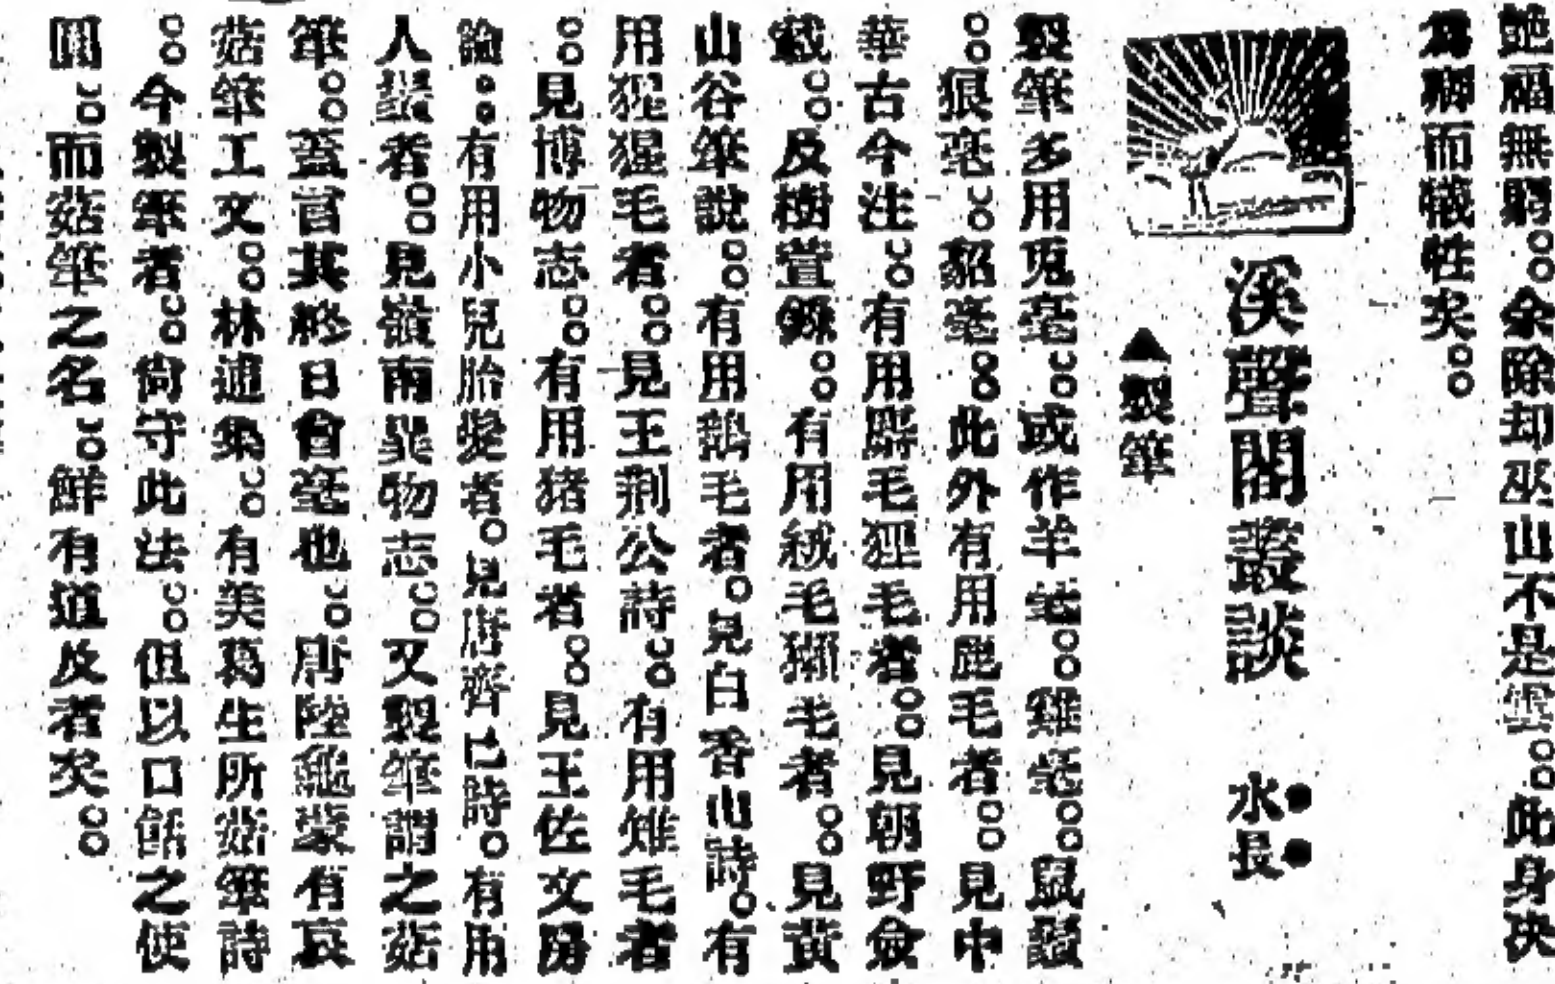 艷福無窮。。余除却巫山不是雲。。此身决
為卿而犧牲矣。。
溪聲閣叢談　水長
▲製筆
製筆多用兎毫。。或作羊毫。。雞毫。。鼠鬚
。。狠毫。。貂毫。。此外有用鹿毛者。。見中
華古今注。。有用麝毛狸毛者。。見朝野僉
載。。反樹萱錄。。有用絨毛獺毛者。。見黃
山谷筆說。。有用鵝毛者。見白香山詩。有
用猩猩毛者。。見王荆公詩。。有用雉毛者
。。見博物志。。有用猪毛者。。見王佐文房
論。。有用小兒胎髮者。見唐齊已詩。有用
人鬚者。。見嶺南異物志。。又製筆謂之茹
筆。。蓋言其終日會毫也。。唐陸龜蒙有哀
茹筆工文。。林逋集。。有美葛生所茹筆詩
。。今製筆者。。尙守此法。。但以口餂之使
圓。。而茹筆之名。。鮮有道及者矣。。